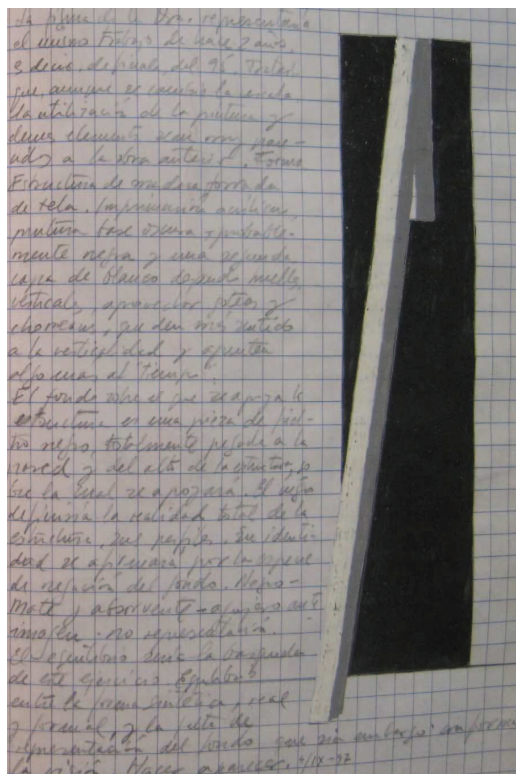 La forma de la Obra. representaría
el mismo trabajo de hace 2 años
es decir. de finales del 95. Todas
que aunque se cambie la escala
la utilización de la pintura y
demás elementos sean muy pare-
cidos a la obra anterior.
Estructura de madera forrada
de tela. Imprimación acrílica,
pintura base oscura probable-
mente negra y una segunda
capa de blanco dejando huellas
verticales, aprovechar gotas y
chorreos, que den más sentido
a la verticalidad y apunten
al tiempo.
El fondo sobre el que se apoya la
estructura es una pieza de fiel-
tro negro, totalmente pegado a la
pared y del alto de la estructura, so-
bre la cual se apoyará. El negro
definiría la realidad total de la
estructura, sus perfiles. Su identi-
dad se afirmará por la especie
de negación del fondo. Negro-
Mate y absorbente - agujero anti
imagen. no representación.
El equilibrio sería la búsqueda
de este ejercicio. Equilibrio
entre la forma sintética, real
y formal, y la falta de
representación del fondo que sin embargo conforma
la visión. Hacer aparecer. 4/IX-97